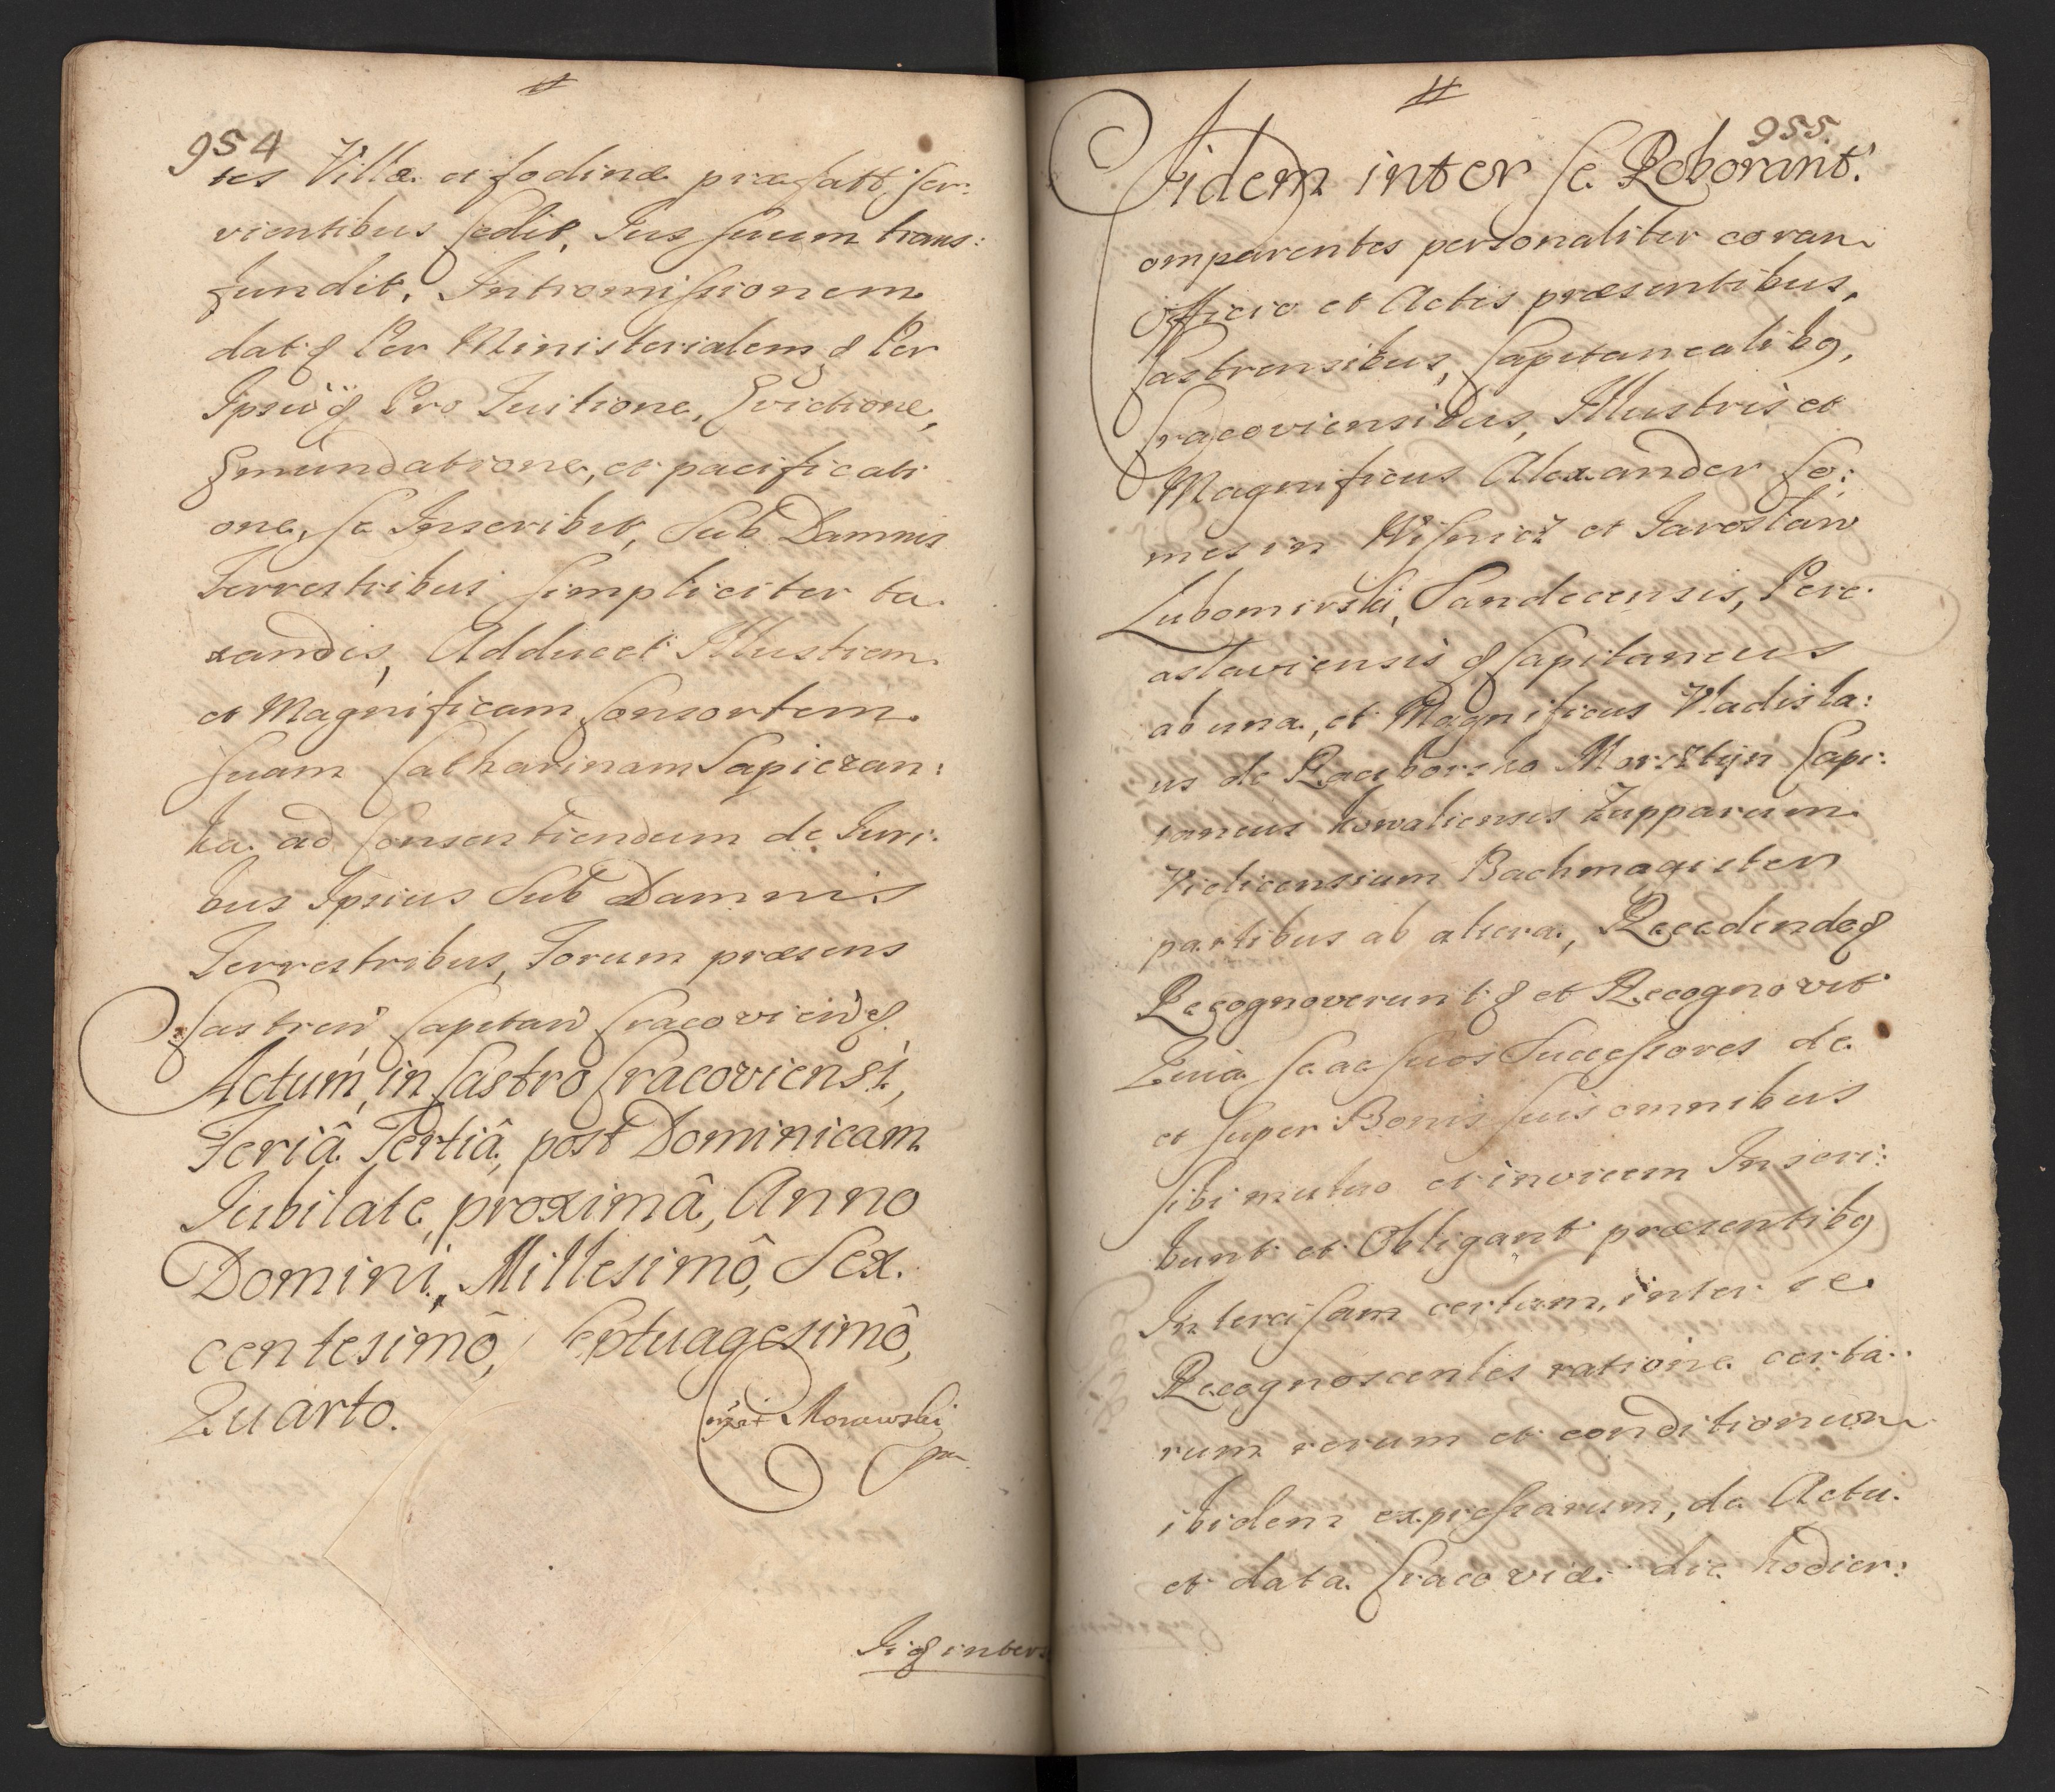 954
tes Villæ et fodinæ præfatt, ser:
vientibus Cedit, Ius suum trans:
fundit, Intromissionem
dat & Per Ministerialem & Per
Ipsiu & Pro Tuitione, Evictione,
Emundatione, et pacificati
one, se Inscribit, Sub Damnis
Terrestribus simpliciter ta
xandis, Adducet Illustrem
et Magnificam Consortem
suam Catharinam Sapiezan:
ka ad Consentiendum de Iuri:
bus Ipsius Sub Damnis
Terrestribus, Forum præsens
Castren Capitan Cracovien &
Actum, in Castro Cracoviensi,
Feriâ Tertiâ, post Dominicam
Jubilate, proximâ, Anno
Domini, Millesimô, Sex.
centesimô, Septuagesimô,
Quarto.
Morawski
Iid inter se
955.
Iidem inter se Roborant.
Comparentes personaliter coram
Officio et Actis præsentibus,
Castrensibus, Capitanealibq,
Cracoviensibus, Illustris et
Magnificus Alexander Co:
mes in Wisnicz et Iaroslaw
Lubomirski, Sandecensis, Pere
aslaviensis & Capitaneus
ab una, et Magnificus Vladisla:
us de Raciborsko Morsztyn Capi:
taneus Kowaliensis Zupparum
Vielicensium Bachmagister
partibus ab altera, Recedendo &
Recognoverunt & et Recognovit
Quia se ac suos Successores de
et super Bonis suis omnibus
sibi mutuo et invicem Inscri:
bunt et Obligant præsentibq
Intercisam certam, inter se
Recognoscentes ratione certa:
rum rerum et conditionum
ibidem expressarum, de Actu
et data Cracoviæ die hodier: